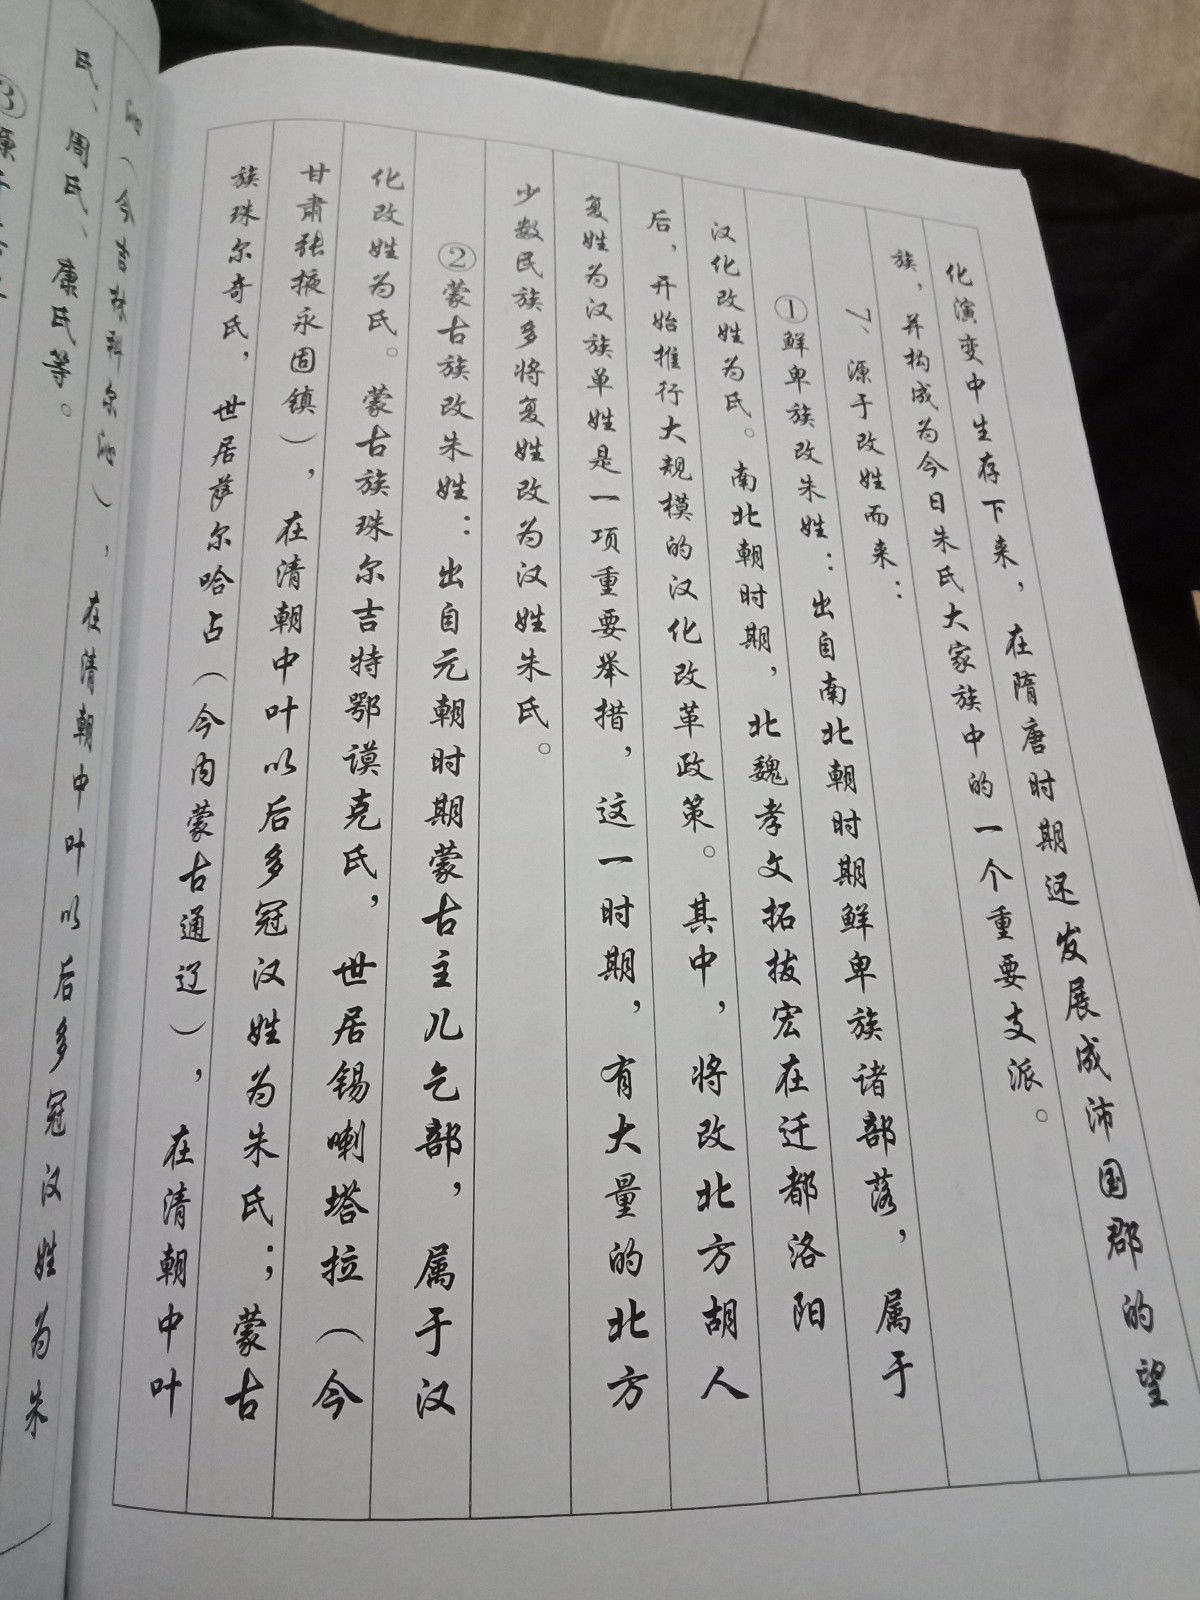 化演变中生存下来，在隋唐时期还发展成沛国郡的望
族，并构成为今日朱氏大家族中的一个重要支派。
7、源于改姓而来：
①鲜卑族改朱姓：出自南北朝时期鲜卑族诸部落，属于
汉化改姓为氏。南北朝时期，北魏孝文拓拔宏在迁都洛阳
后，开始推行大规模的汉化改革政策。其中，将改北方胡人
复姓为汉族单姓是一项重要举措，这一时期，有大量的北方
少数民族多将复姓改为汉姓朱氏。
②蒙古族改朱姓：出自元朝时期蒙古主儿乞部，属于汉
化改姓为氏。蒙古族珠尔吉特鄂谟克氏，世居锡喇塔拉（今
甘肃张掖永固镇），在清朝中叶以后多冠汉姓为朱氏；蒙古
族珠尔奇氏，世居萨尔哈占（今内蒙古通辽），在清朝中叶
沁（今吉林科尔沁），在清朝中叶以后多冠汉姓为朱
氏、周氏、康氏等。
③源于